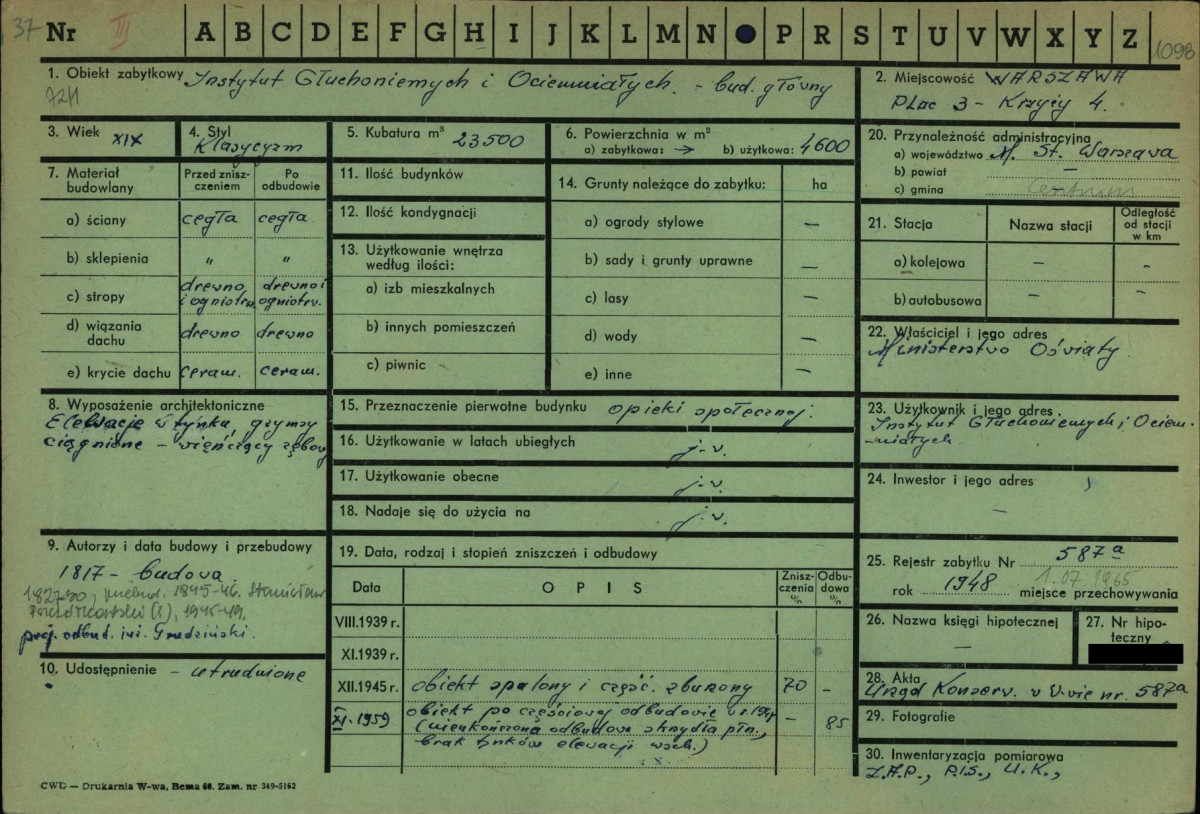 37 Nr III A B C D E F G H I J K L M N P R S T U V W X Y Z 1098
1. Obiekt zabytkowy Instytut Głuchoniemych i Ociemniałych. - bud. główny
72/1
2. Miejscowość WARSZAWA
Plac 3 - Krzyży 4.
3. Wiek XIX
4. Styl Klasycyzm
5. Kubatura m³ 23500
6. Powierzchnia w m²
a) zabytkowa: → b) użytkowa: 4600
7. Materiał budowlany
Przed zniszczeniem
Po odbudowie
a) ściany cegła cegła
b) sklepienia " "
c) stropy drewno i ogniotrw. drewno i ogniotrw.
d) wiązania dachu drewno drewno
e) krycie dachu ceram. ceram.
8. Wyposażenie architektoniczne
Elewacje w tynku, gzymsy
ciągnione - wieńczący ząbkowy
9. Autorzy i data budowy i przebudowy
1817 - budowa
1827-30, 1845-46. Stanisław
(?), 1945-49.
proj. odbud. inż. Grudziński.
10. Udostępnienie - utrudnione
11. Ilość budynków
12. Ilość kondygnacji
13. Użytkowanie wnętrza według ilości:
a) izb mieszkalnych
b) innych pomieszczeń
c) piwnic
14. Grunty należące do zabytku: ha
a) ogrody stylowe —
b) sady i grunty uprawne —
c) lasy —
d) wody —
e) inne —
15. Przeznaczenie pierwotne budynku opieki społecznej.
16. Użytkowanie w latach ubiegłych j.w.
17. Użytkowanie obecne j.w.
18. Nadaje się do użycia na j.w.
19. Data, rodzaj i stopień zniszczeń i odbudowy
Data OPIS Zniszczenia % Odbudowa %
VIII.1939 r.
XI.1939 r.
XII.1945 r. obiekt spalony i część. zburzony 70 -
XI.1959 obiekt po częściowej odbudowie w r. 1949 - 85
(nieukończona odbudowa skrzydła płn.,
brak tynków elewacji wsch.)
20. Przynależność administracyjna
a) województwo M. St. Warszawa
b) powiat —
c) gmina Centrum
21. Stacja Nazwa stacji Odległość od stacji w km
a) kolejowa — -
b) autobusowa — -
22. Właściciel i jego adres
Ministerstwo Oświaty
23. Użytkownik i jego adres
Instytut Głuchoniemych i Ociem-
-niałych.
24. Inwestor i jego adres
—
25. Rejestr zabytku Nr 587a
rok 1948 1.07.1965 miejsce przechowywania
26. Nazwa księgi hipotecznej
—
27. Nr hipoteczny
28. Akta
Urząd Konserw. w W-wie nr. 587a
29. Fotografie
30. Inwentaryzacja pomiarowa
Z.A.P., P.I.S., U.K.,
CWD — Drukarnia W-wa, Bema 60. Zam. nr 349-5162